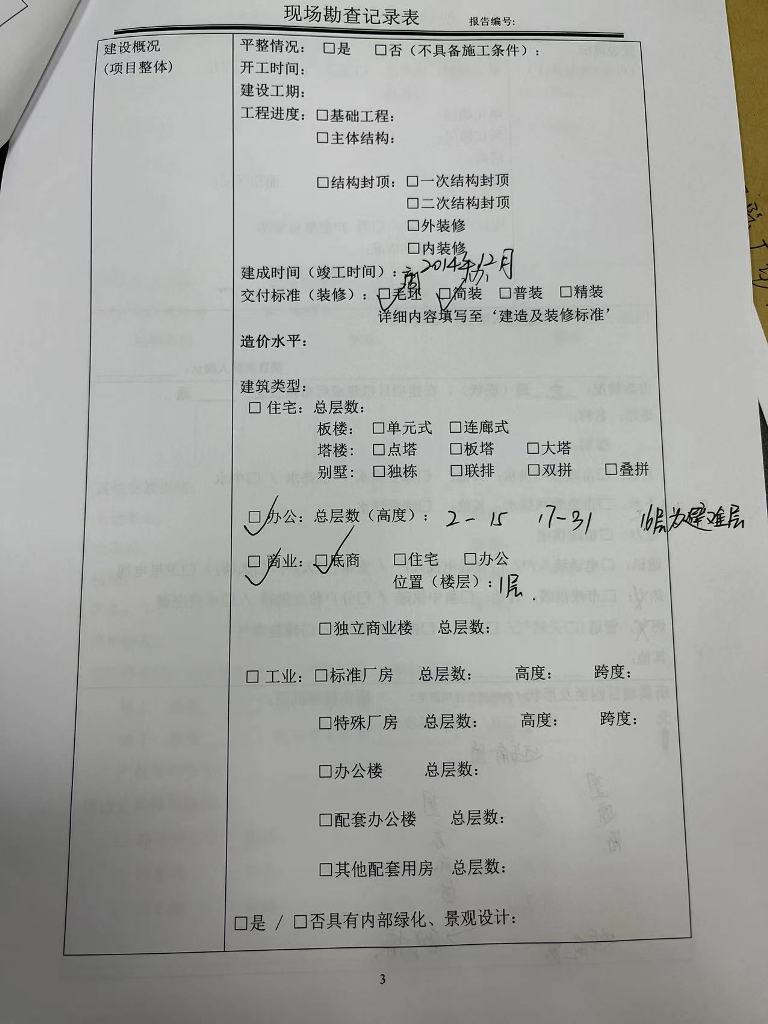 现场勘查记录表 报告编号:
建设概况
(项目整体)
平整情况: □是 □否(不具备施工条件):
开工时间:
建设工期:
工程进度: □基础工程:
□主体结构:
□结构封顶: □一次结构封顶
□二次结构封顶
□外装修
□内装修
建成时间(竣工时间): 2014年12月
商 办
交付标准(装修): ☑毛坯 ☑简装 □普装 □精装
详细内容填写至‘建造及装修标准’
造价水平:
建筑类型:
□ 住宅: 总层数:
板楼: □单元式 □连廊式
塔楼: □点塔 □板塔 □大塔
别墅: □独栋 □联排 □双拼 □叠拼
☑ 办公: 总层数(高度): 2-15 17-31 16层为避难层
☑ 商业: ☑底商 □住宅 □办公
位置(楼层): 1层.
□独立商业楼 总层数:
□ 工业: □标准厂房 总层数: 高度: 跨度:
□特殊厂房 总层数: 高度: 跨度:
□办公楼 总层数:
□配套办公楼 总层数:
□其他配套用房 总层数:
□是 / □否具有内部绿化、景观设计:
3